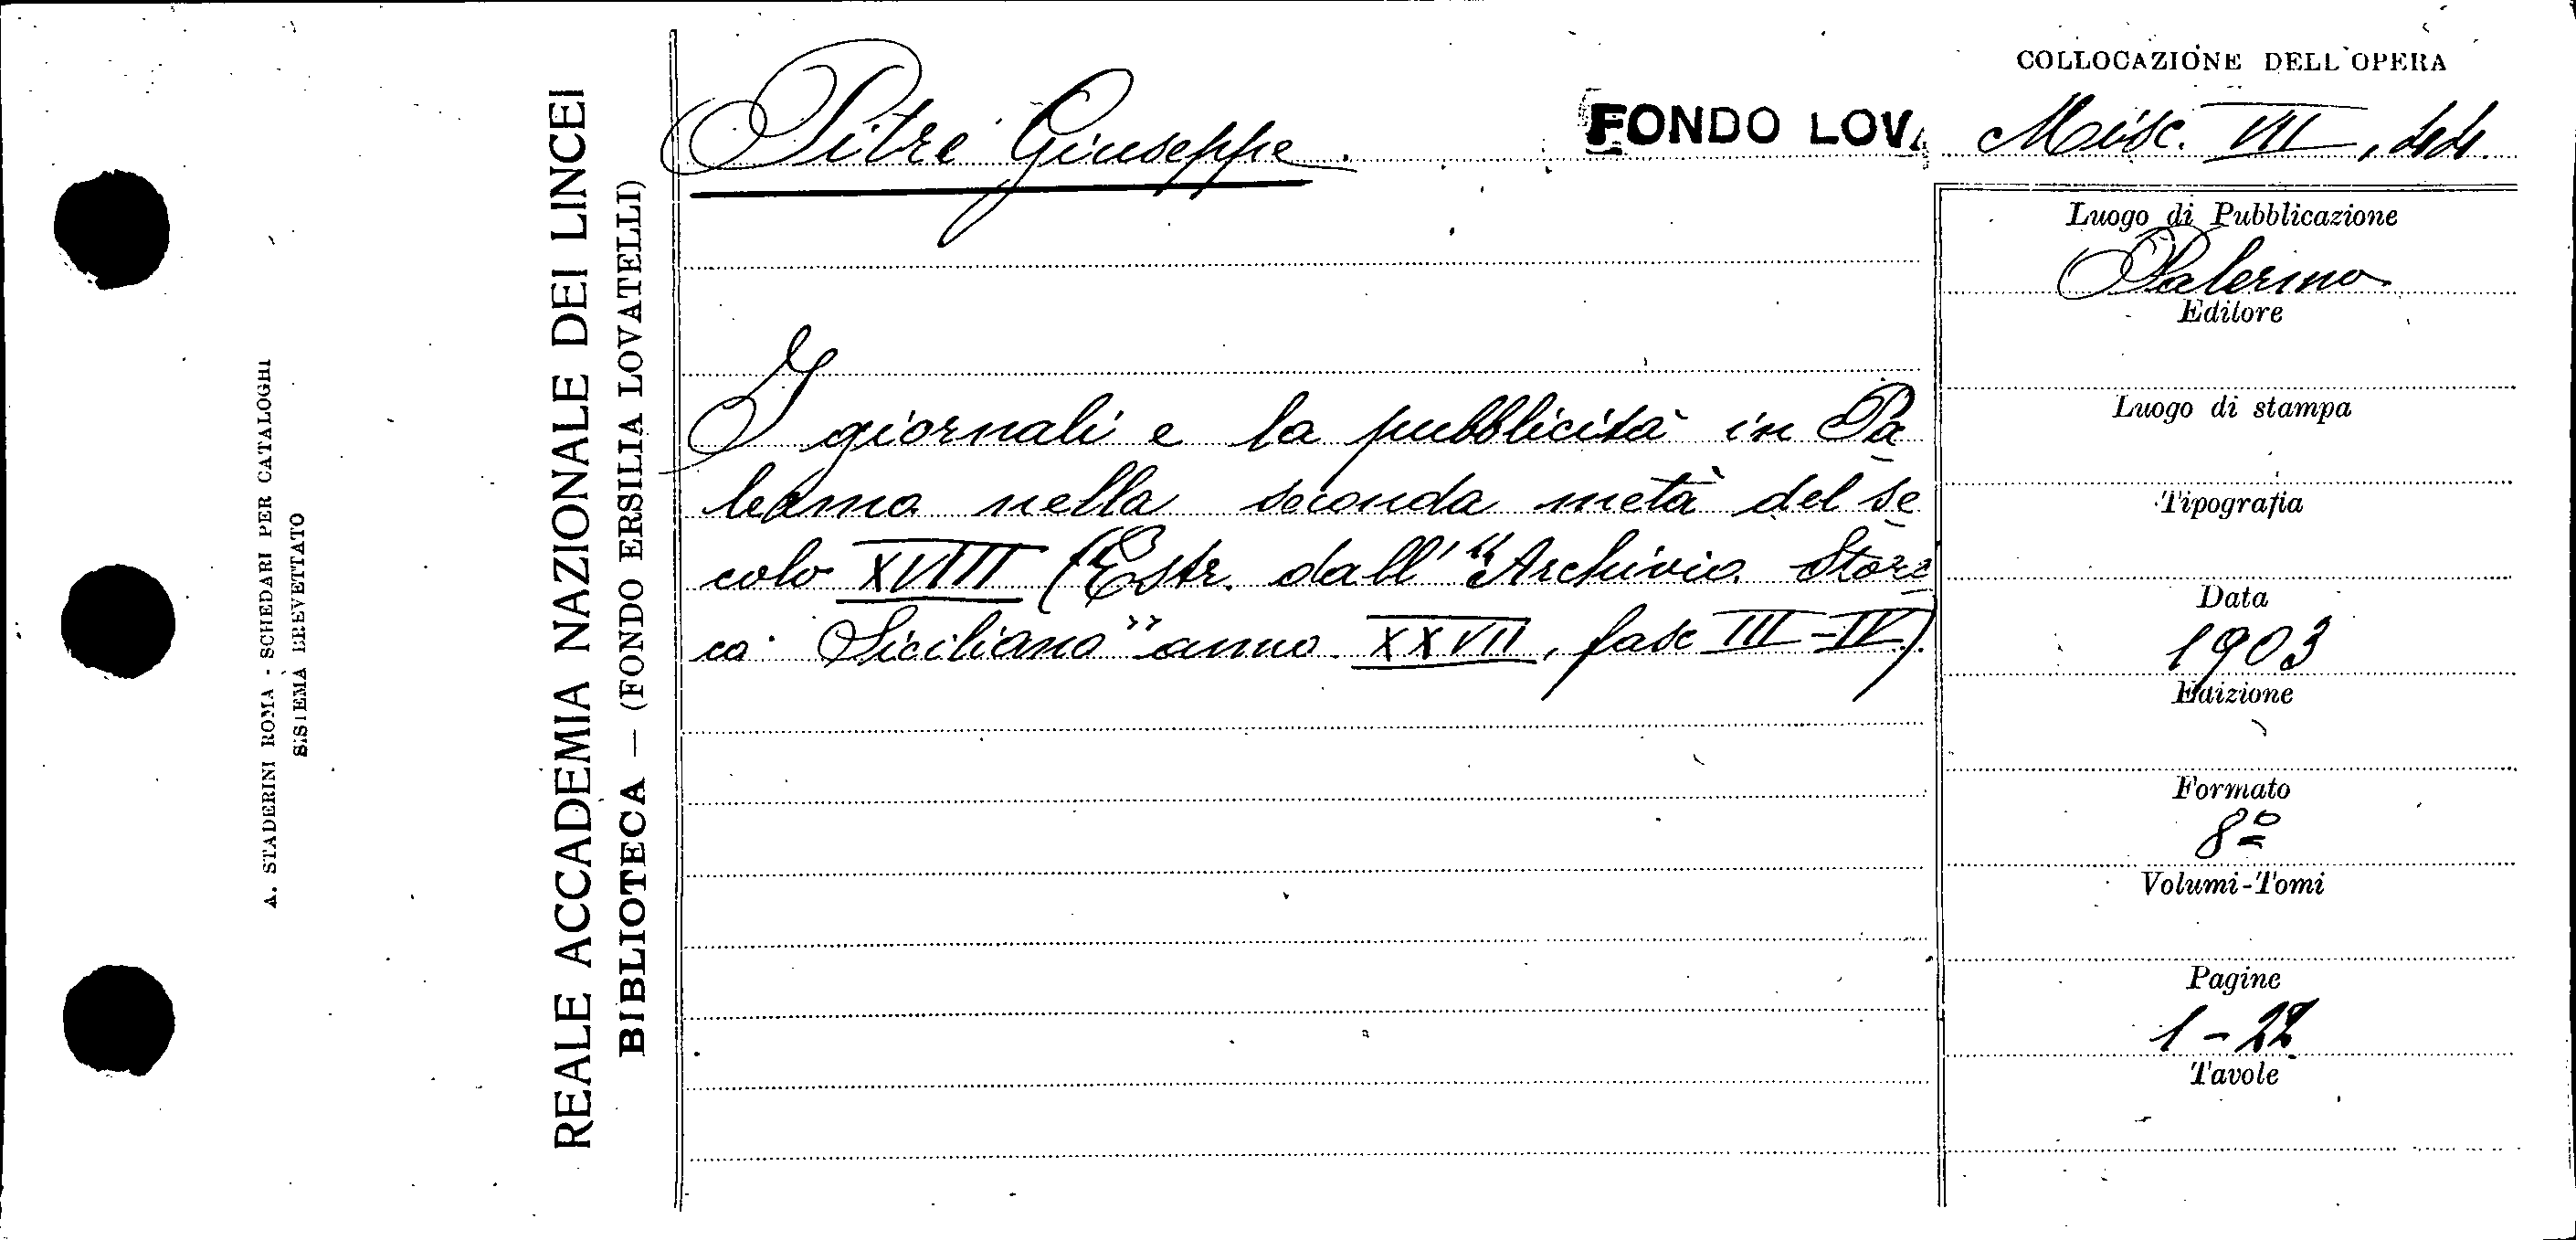 A. STADERINI ROMA - SCHEDARI PER CATALOGHI
SISTEMA BREVETTATO
REALE ACCADEMIA NAZIONALE DEI LINCEI
BIBLIOTECA — (FONDO ERSILIA LOVATELLI)
Pitrè Giuseppe.
FONDO LOVA
COLLOCAZIONE DELL'OPERA
Misc. VII, 44.
I giornali e la pubblicità in Pa
lermo nella seconda metà del se
colo XVIII (Estr. dall' "Archivio Stori
co Siciliano" anno XXVII, fasc III-IV).
Luogo di Pubblicazione
Palermo
Editore
Luogo di stampa
Tipografia
Data
1903
Edizione
Formato
8º
Volumi-Tomi
Pagine
1-22
Tavole